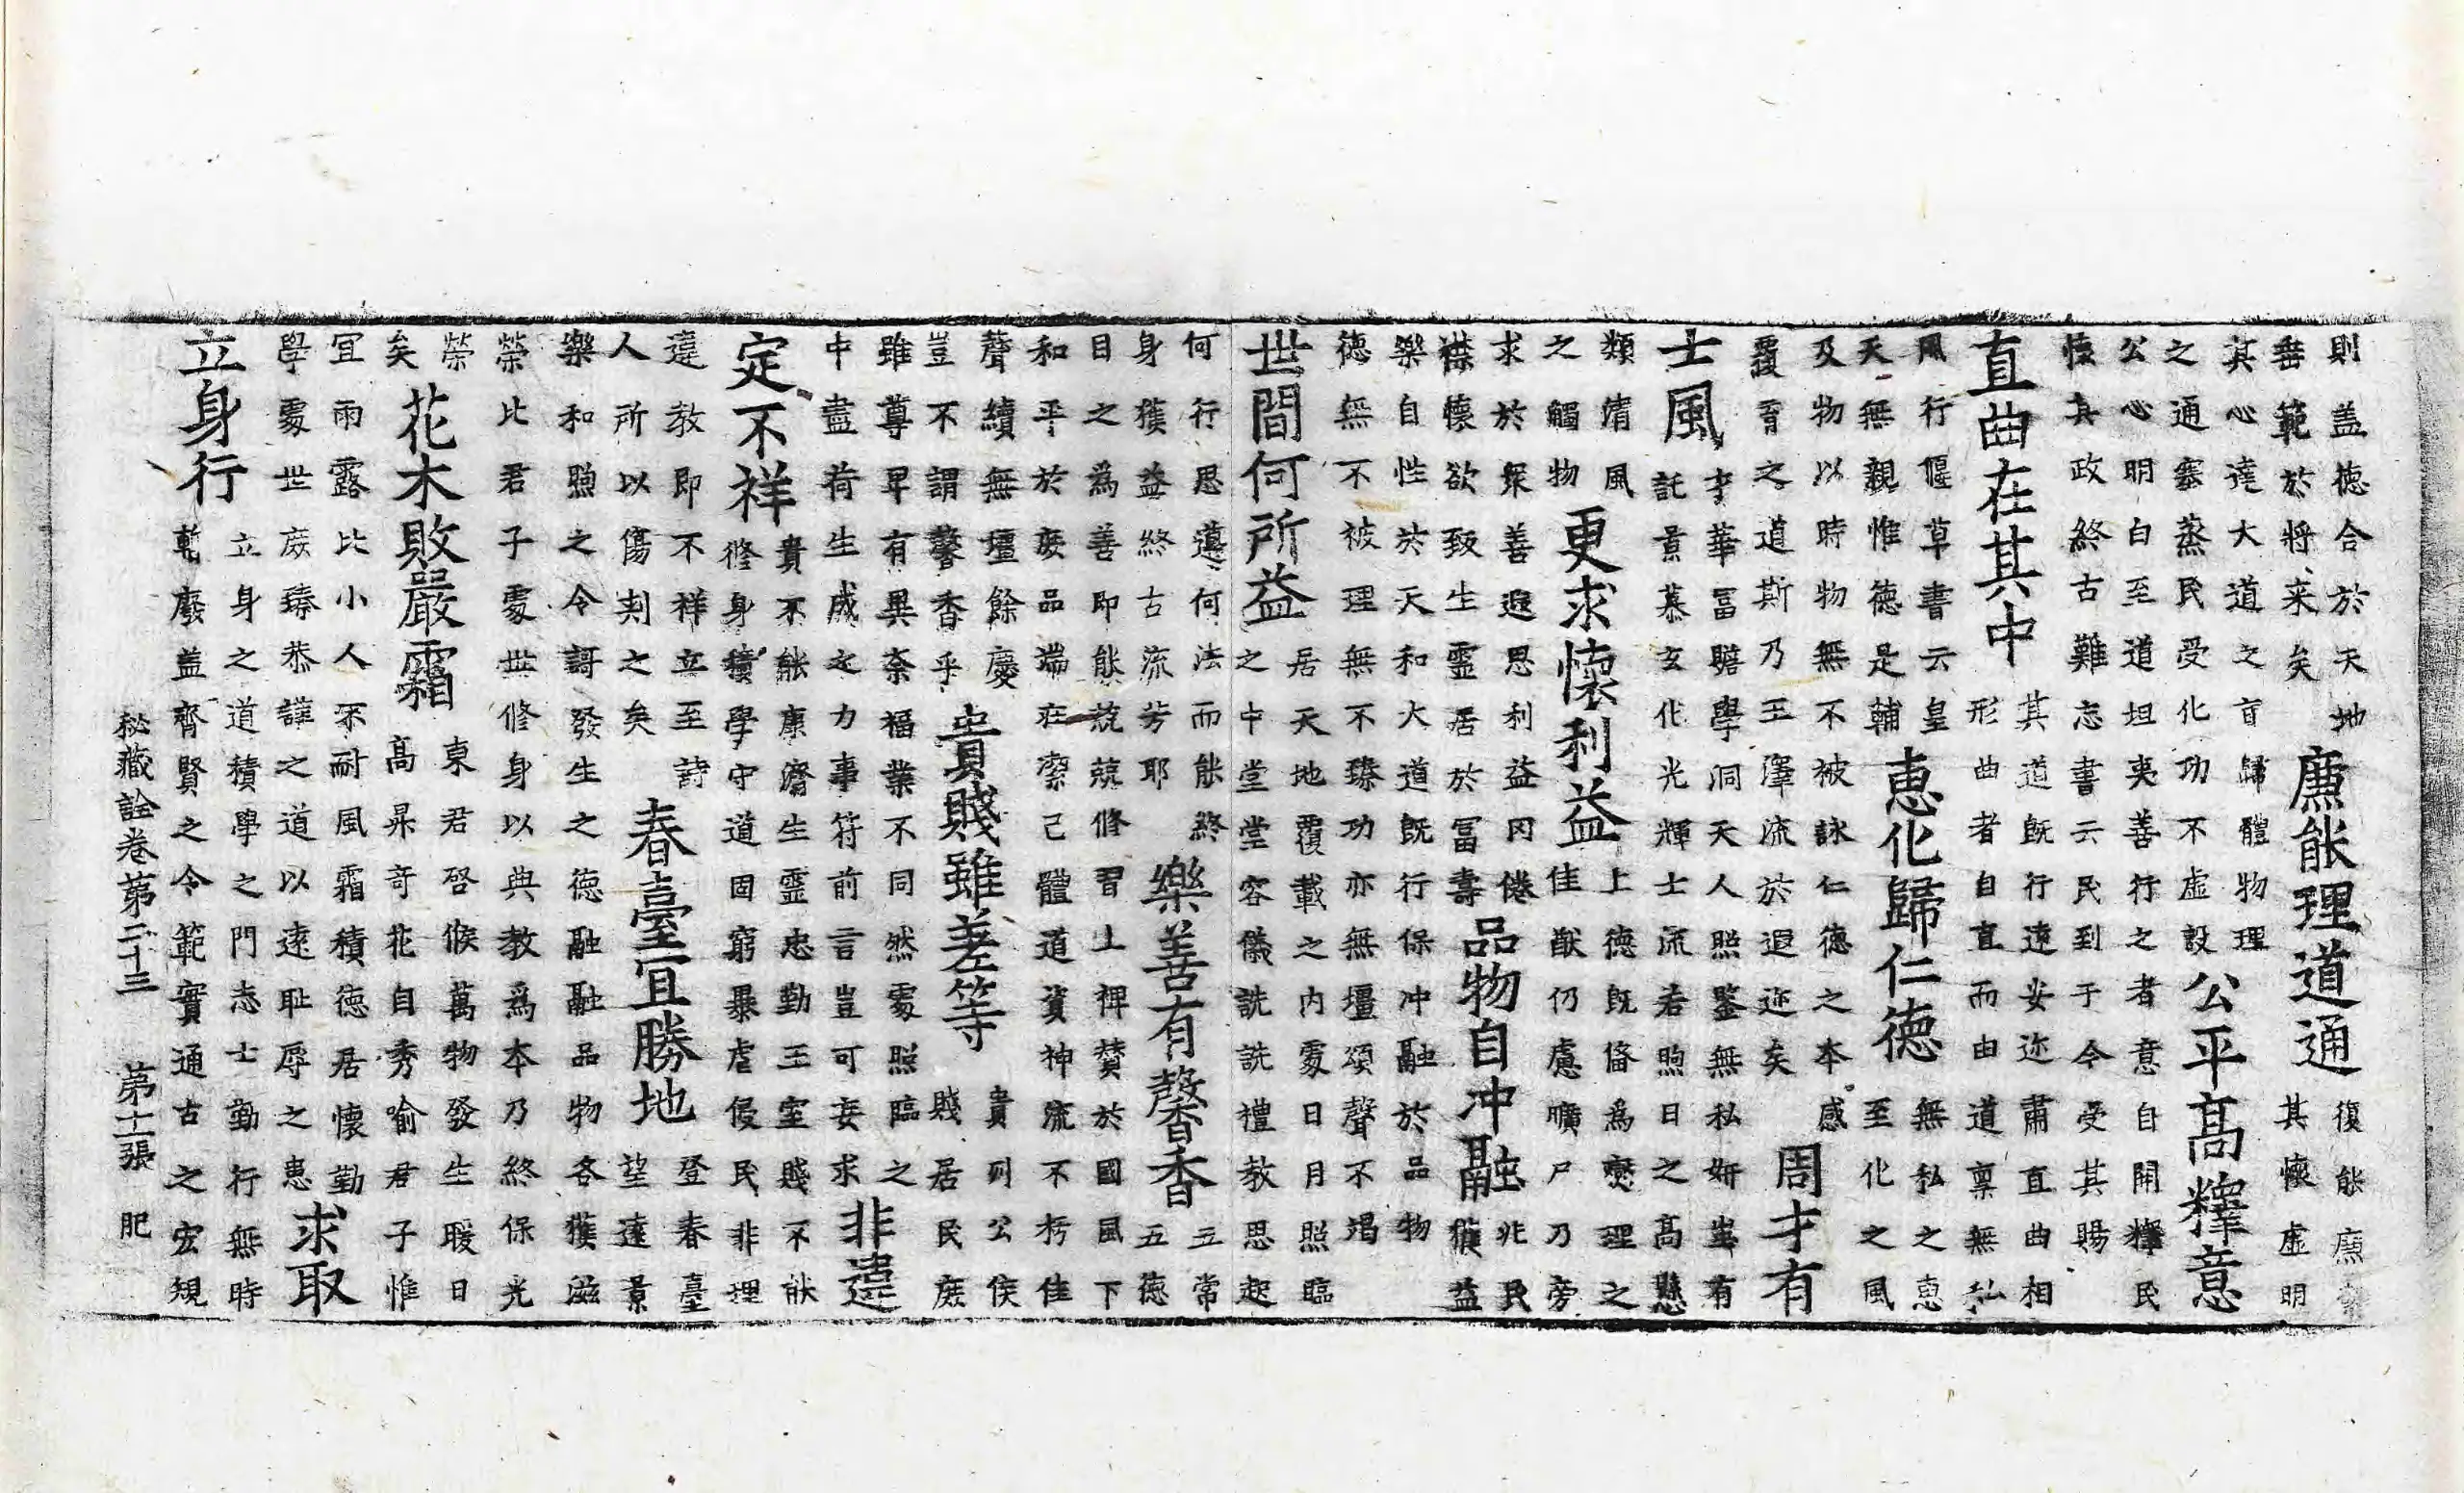 則盖德合於天地
垂範於將来矣
廉能理道通
復能廉
其懷虛明
其心達大道之盲歸體物理
之通塞蒸民受化功不虛設
公平高釋意
公心明白至道坦夷善行之者意自開釋民
懷其政終古難忘書云民到于今受其賜
直曲在其中
其道既行遠安迩肅直曲相
形曲者自直而由道稟無私
風行偃草書云皇
天無親惟德是輔
惠化歸仁德
無私之惠
至化之風
及物以時物無不被詠仁德之本感
覆育之道斯乃王澤流於遐迩矣
周才有
士風
才華冨贍學洞天人照鑒無私妍蚩有
託景慕玄化光輝士流若煦日之高懸
類清風
之觸物
更求懷利益
上德既俻為爕理之
佳猷仍慮曠尸乃旁
求於衆善遐思利益罔倦
襟懷欲致生靈居於冨壽
品物自冲融
兆民
獲益
樂自性於天和大道既行保冲融於品物
德無不被理無不臻功亦無壃頌聲不竭
世間何所益
居天地覆載之内處日月照臨
之中堂堂容儀詵詵禮教思起
何行思遵何法而能終
身獲益終古流芳耶
樂善有馨香
五常
五德
目之為善即能兢兢修習上裨贊於國風下
和平於庶品端在潔己體道資神流不朽佳
聲續無壃餘慶
豈不謂馨香乎
貴賤雖差等
貴列公侯
賤居民庶
雖尊卑有異柰福業不同然處照臨之
中盡荷生成之力事符前言豈可妄求
非違
定不祥
貴不能康濟生靈忠勤王室賤不能
修身積學守道固窮暴虐侵民非理
違教即不祥立至詩
人所以傷刺之矣
春臺宜勝地
登春臺
望遠景
樂和煦之令謌發生之德融融品物各獲滋
榮比君子處世修身以典教為本乃終保光
榮
矣
花木敗嚴霜
東君啓候萬物發生暖日
高杲奇花自秀喻君子惟
宜雨露比小人不耐風霜積德居懷勤
學處世庶臻恭謹之道以遠耻辱之患
求取
立身行
立身之道積學之門志士勤行無時
暫廢盖齊賢之令範實通古之宏規
秘藏詮卷第二十三 第十一張 肥